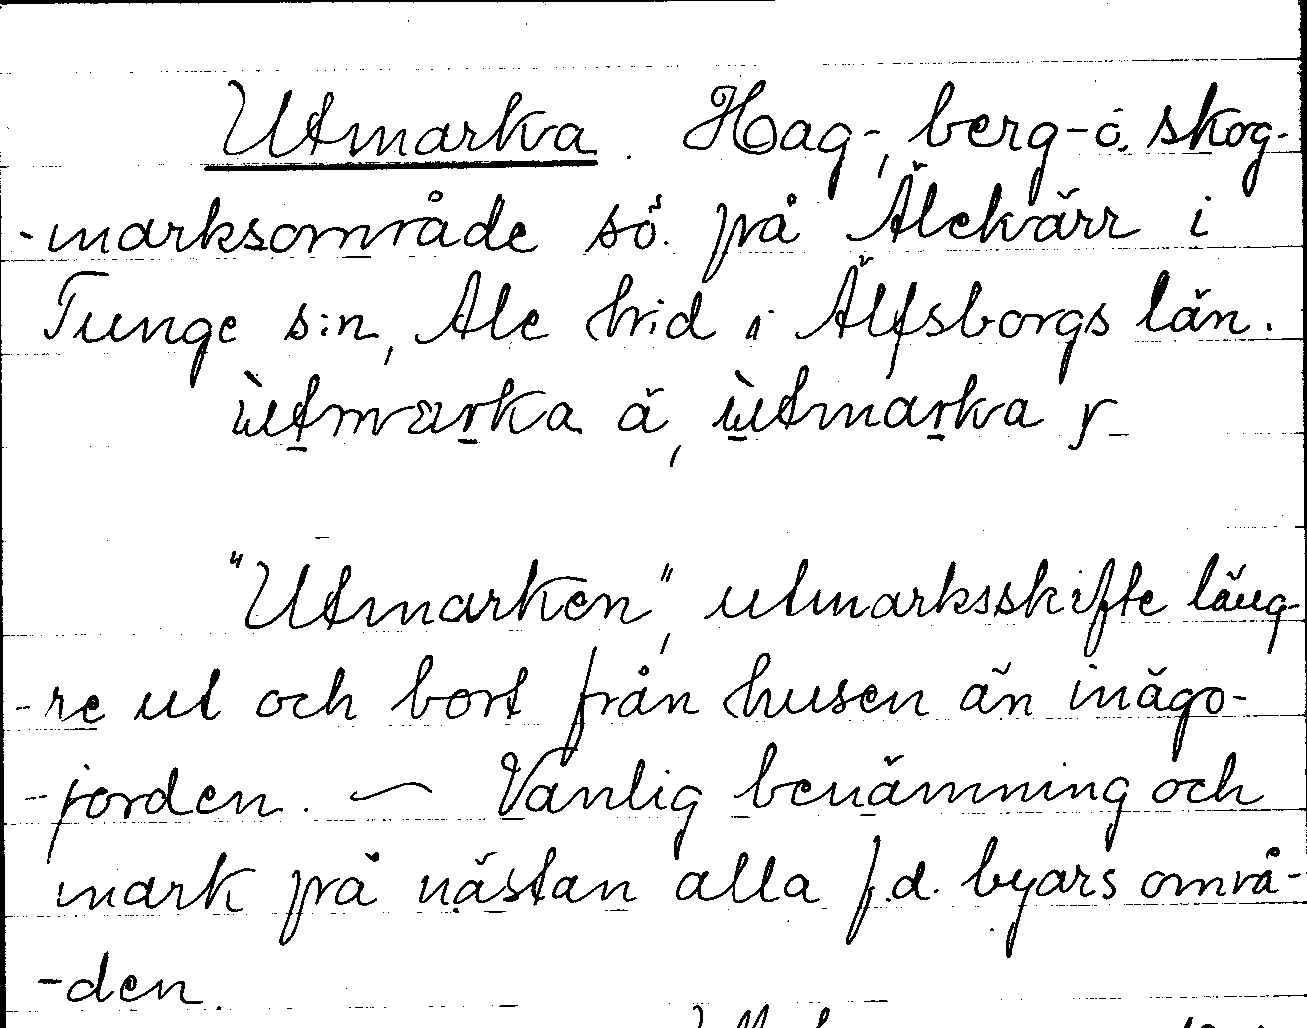 Utmarka. Hag-, berg- o. skog-
-marksområde sö. på Älekärr i
Tunge s:n, Ale hrid i Älfsborgs län.
ùtmarka ä, ùtmarka y
"Utmarken", utmarksskifte läng-
-re ut och bort från husen än inägo-
-jorden. — Vanlig benämning och
mark på nästan alla f.d. byars områ-
-den.